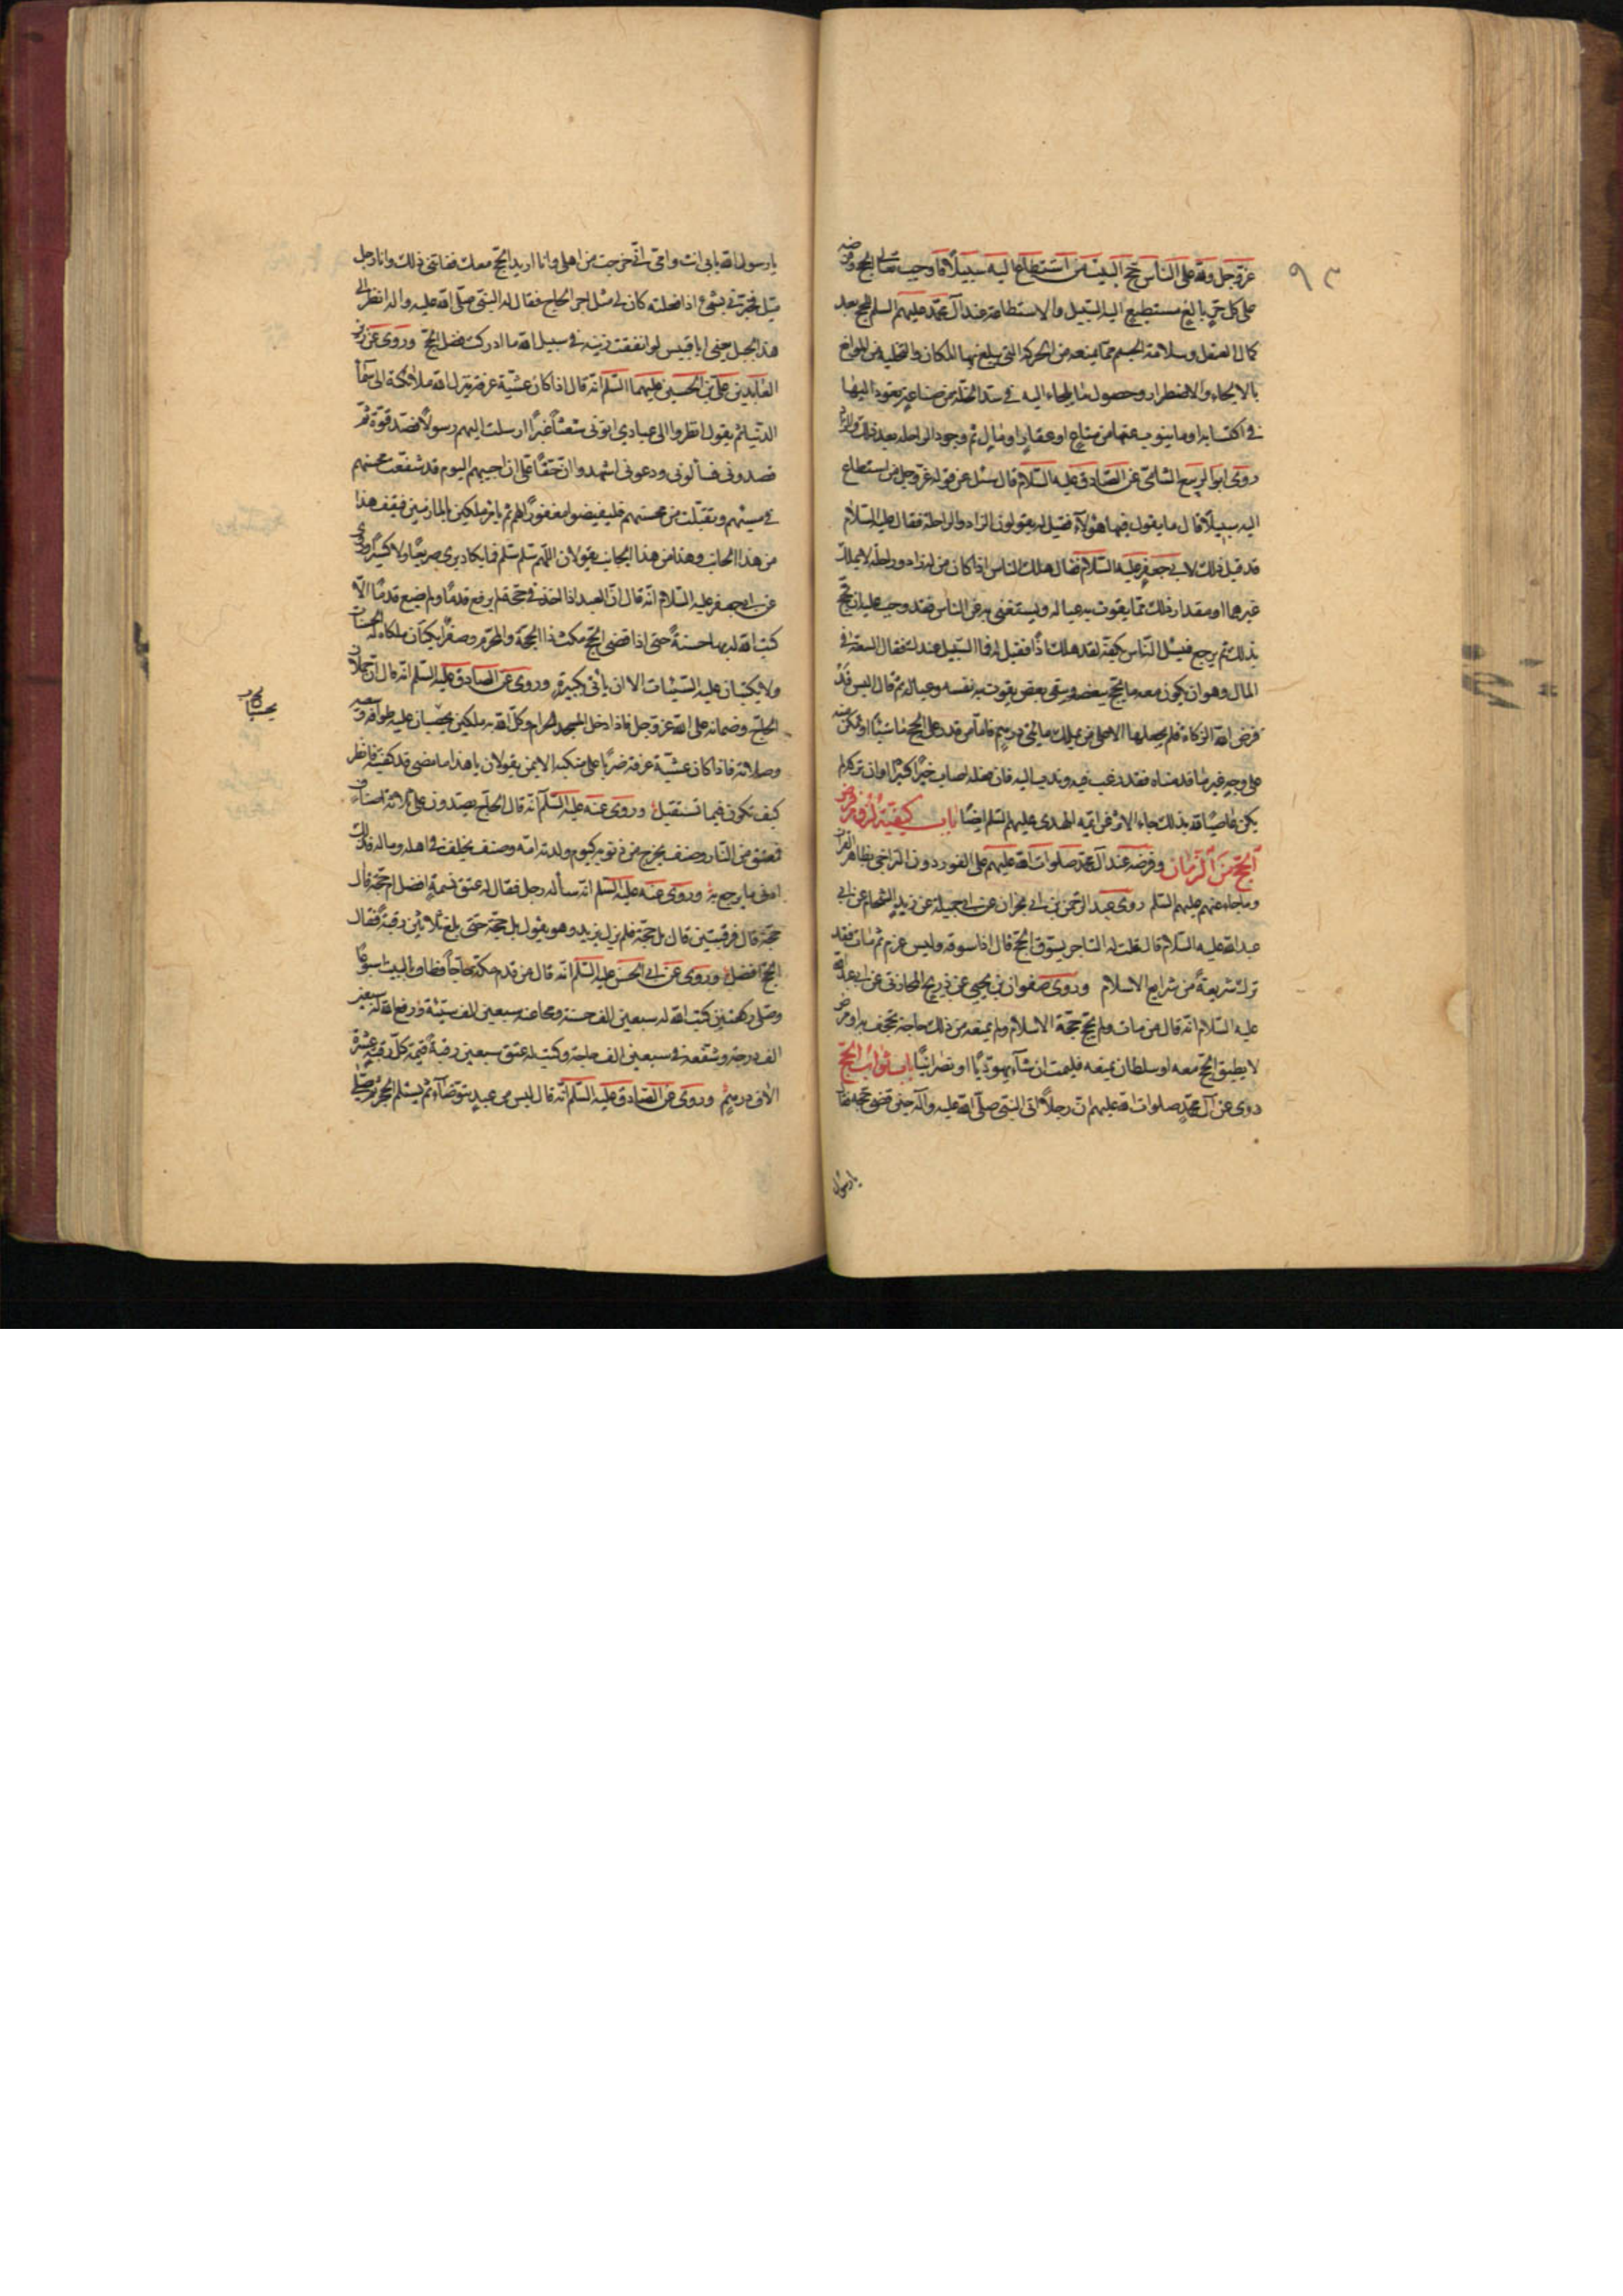 ٩٣
عز وجل ولله على الناس حج البيت من استطاع اليه سبيلا فاوجب تعالى الحج وفرضه
على كل حر بالغ مستطيع اليه السبيل والاستطاعة عند آل محمد عليهم السلم للحج بعد
كمال العقل وسلامة الجسم مما يمنعه من الحركة التي يبلغ بها المكان والتخلية من الموانع
بالالجاء والاضطرار وحصول ما يلجاء اليه في سد الخلة من صناعة يعود اليها
في اكتسابه او ما ينوب عنها من متاع او عقار او مال ثم وجود الراحلة بعد ذلك والزاد
روى ابو الربيع الشامي عن الصادق عليه السلام قال سئل عن قوله عز وجل من استطاع
اليه سبيلا قال ما يقول فيها هؤلاء فقيل له يقولون الزاد والراحلة فقال عليه السلام
قد قيل ذلك لابي جعفر عليه السلام فقال هلك الناس اذا كان من له زاد وراحلة لا يملك
غيرهما او مقدار ذلك مما يقوت به عياله ويستغنى به عن الناس فقد وجب عليه ان يحج
بذلك ثم يرجع فيسئل الناس بكفه لقد هلك اذا فقيل له فما السبيل عندك فقال السعة في
المال وهو ان يكون معه ما يحج ببعضه ويبقى بعض يقوت به نفسه وعياله ثم قال اليس قد
فرض الله الزكاة فلم يجعلها الا على من يملك مائتي درهم فاما من قدر على الحج ماشيا او تمكن منه
على وجه غير ما قدمناه فقد رغب فيه وندب اليه فان فعله اصاب خيرا كثيرا وان تركه لم
يكن عاصيا لله بذلك جاء الاثر عن ائمة الهدى عليهم السلم ايضا باب كيفية لزوم فرض
الحج من الزمان وفرضه عند آل محمد صلوات الله عليهم على الفور دون التراخي بظاهر القران
وما جاء عنهم عليهم السلم روى عبد الرحمن بن ابي نجران عن ابي جميلة عن زيد الشحام عن ابي
عبد الله عليه السلام قال قلت له التاجر يسوق الحج قال اذا سوفه وليس عزم ثم مات فقد
ترك شريعة من شرايع الاسلام وروى صفوان بن يحيى عن ذريح المحاربي عن ابي عبد الله
عليه السلام انه قال من مات ولم يحج حجة الاسلام ولم يمنعه من ذلك حاجة تجحف به او مرض
لا يطيق الحج معه او سلطان يمنعه فليمت ان شاء يهوديا او نصرانيا باب ثواب الحج
روى عن آل محمد صلوات الله عليهم ان رجلا اتى النبي صلى الله عليه وآله حين قضى حجه فقال
يا رسول
يا رسول الله بابي انت وامي اني خرجت من اهلي وانا اريد الحج معك ففاتني ذلك وانا رجل
ميل فمرني بشيء اذا فعلته كان لي مثل اجر الحاج فقال له النبي صلى الله عليه واله انظر الى
هذا الجبل يعني ابا قبيس لو انفقت زنته في سبيل الله ما ادركت فضل الحج وروى عن زين
العابدين علي بن الحسين عليهما السلم انه قال اذا كان عشية عرفة ينزل الله ملائكة الى سماء
الدنيا ثم يقول انظروا الى عبادي اتوني شعثا غبرا ارسلت اليهم رسولا فصدقوه ثم
قصدوني فسألوني ودعوني اشهدوا ان حقا علي ان اجيبهم اليوم قد شفعت محسنهم
في مسيئهم وتقبلت من محسنهم فليفيضوا مغفورا لهم ثم يامر ملكين بالمازمين فيقف هذا
من هذا الجانب وهذا من هذا الجانب يقولان اللهم سلم سلم فما يكاد يرى صريعا ولا كسيرا وروى
عن ابي جعفر عليه السلام انه قال ان العبد اذا اخذ في حجة لم يرفع قدما ولم يضع قدما الا
كتب الله له بها حسنة حتى اذا قضى الحج مكث ذا الحجة والمحرم وصفرا يكتبان ملكاه له الحسنات
ولا يكتبان عليه السيئات الا ان يأتي بكبيرة وروى عن الصادق عليه السلم انه قال ان حملان
الحاج وضمانه على الله عز وجل فاذا دخل المسجد الحرام وكل الله به ملكين يحصيان عليه طوافه وسعيه
وصلاته فاذا كان عشية عرفة ضربا على منكبه الايمن يقولان يا هذا ما مضى قد كفيته فانظر
كيف تكون فيما تستقبل وروى عنه عليه السلم انه قال الحاج يصدرون على ثلاثة اصناف
فعتق من النار وصنف يخرج من ذنوبه كيوم ولدته امه وصنف يخلف في اهله وماله فذلك
ادنى ما يرجع به وروى عنه عليه السلم انه سأله رجل فقال له عتق نسمة افضل ام حجة قال
حجة قال فرقبتين قال بل حجة فلم يزل يزيد وهو يقول بل حجة حتى بلغ ثلاثين رقبة فقال
الحج افضل وروى عن ابي الحسن عليه السلم انه قال من قدم مكة حاجا فطاف بالبيت اسبوعا
وصلى ركعتين كتب الله له سبعين الف حسنة ومحا عنه سبعين الف سيئة ورفع الله له سبعين
الف درجة وشفعه في سبعين الف حاجة وكتب له عتق سبعين رقبة قيمة كل رقبة عشرة
الاف درهم وروى عن الصادق عليه السلم انه قال ليس من عبد يتوضأ ثم يستلم الحجر ثم يصلي